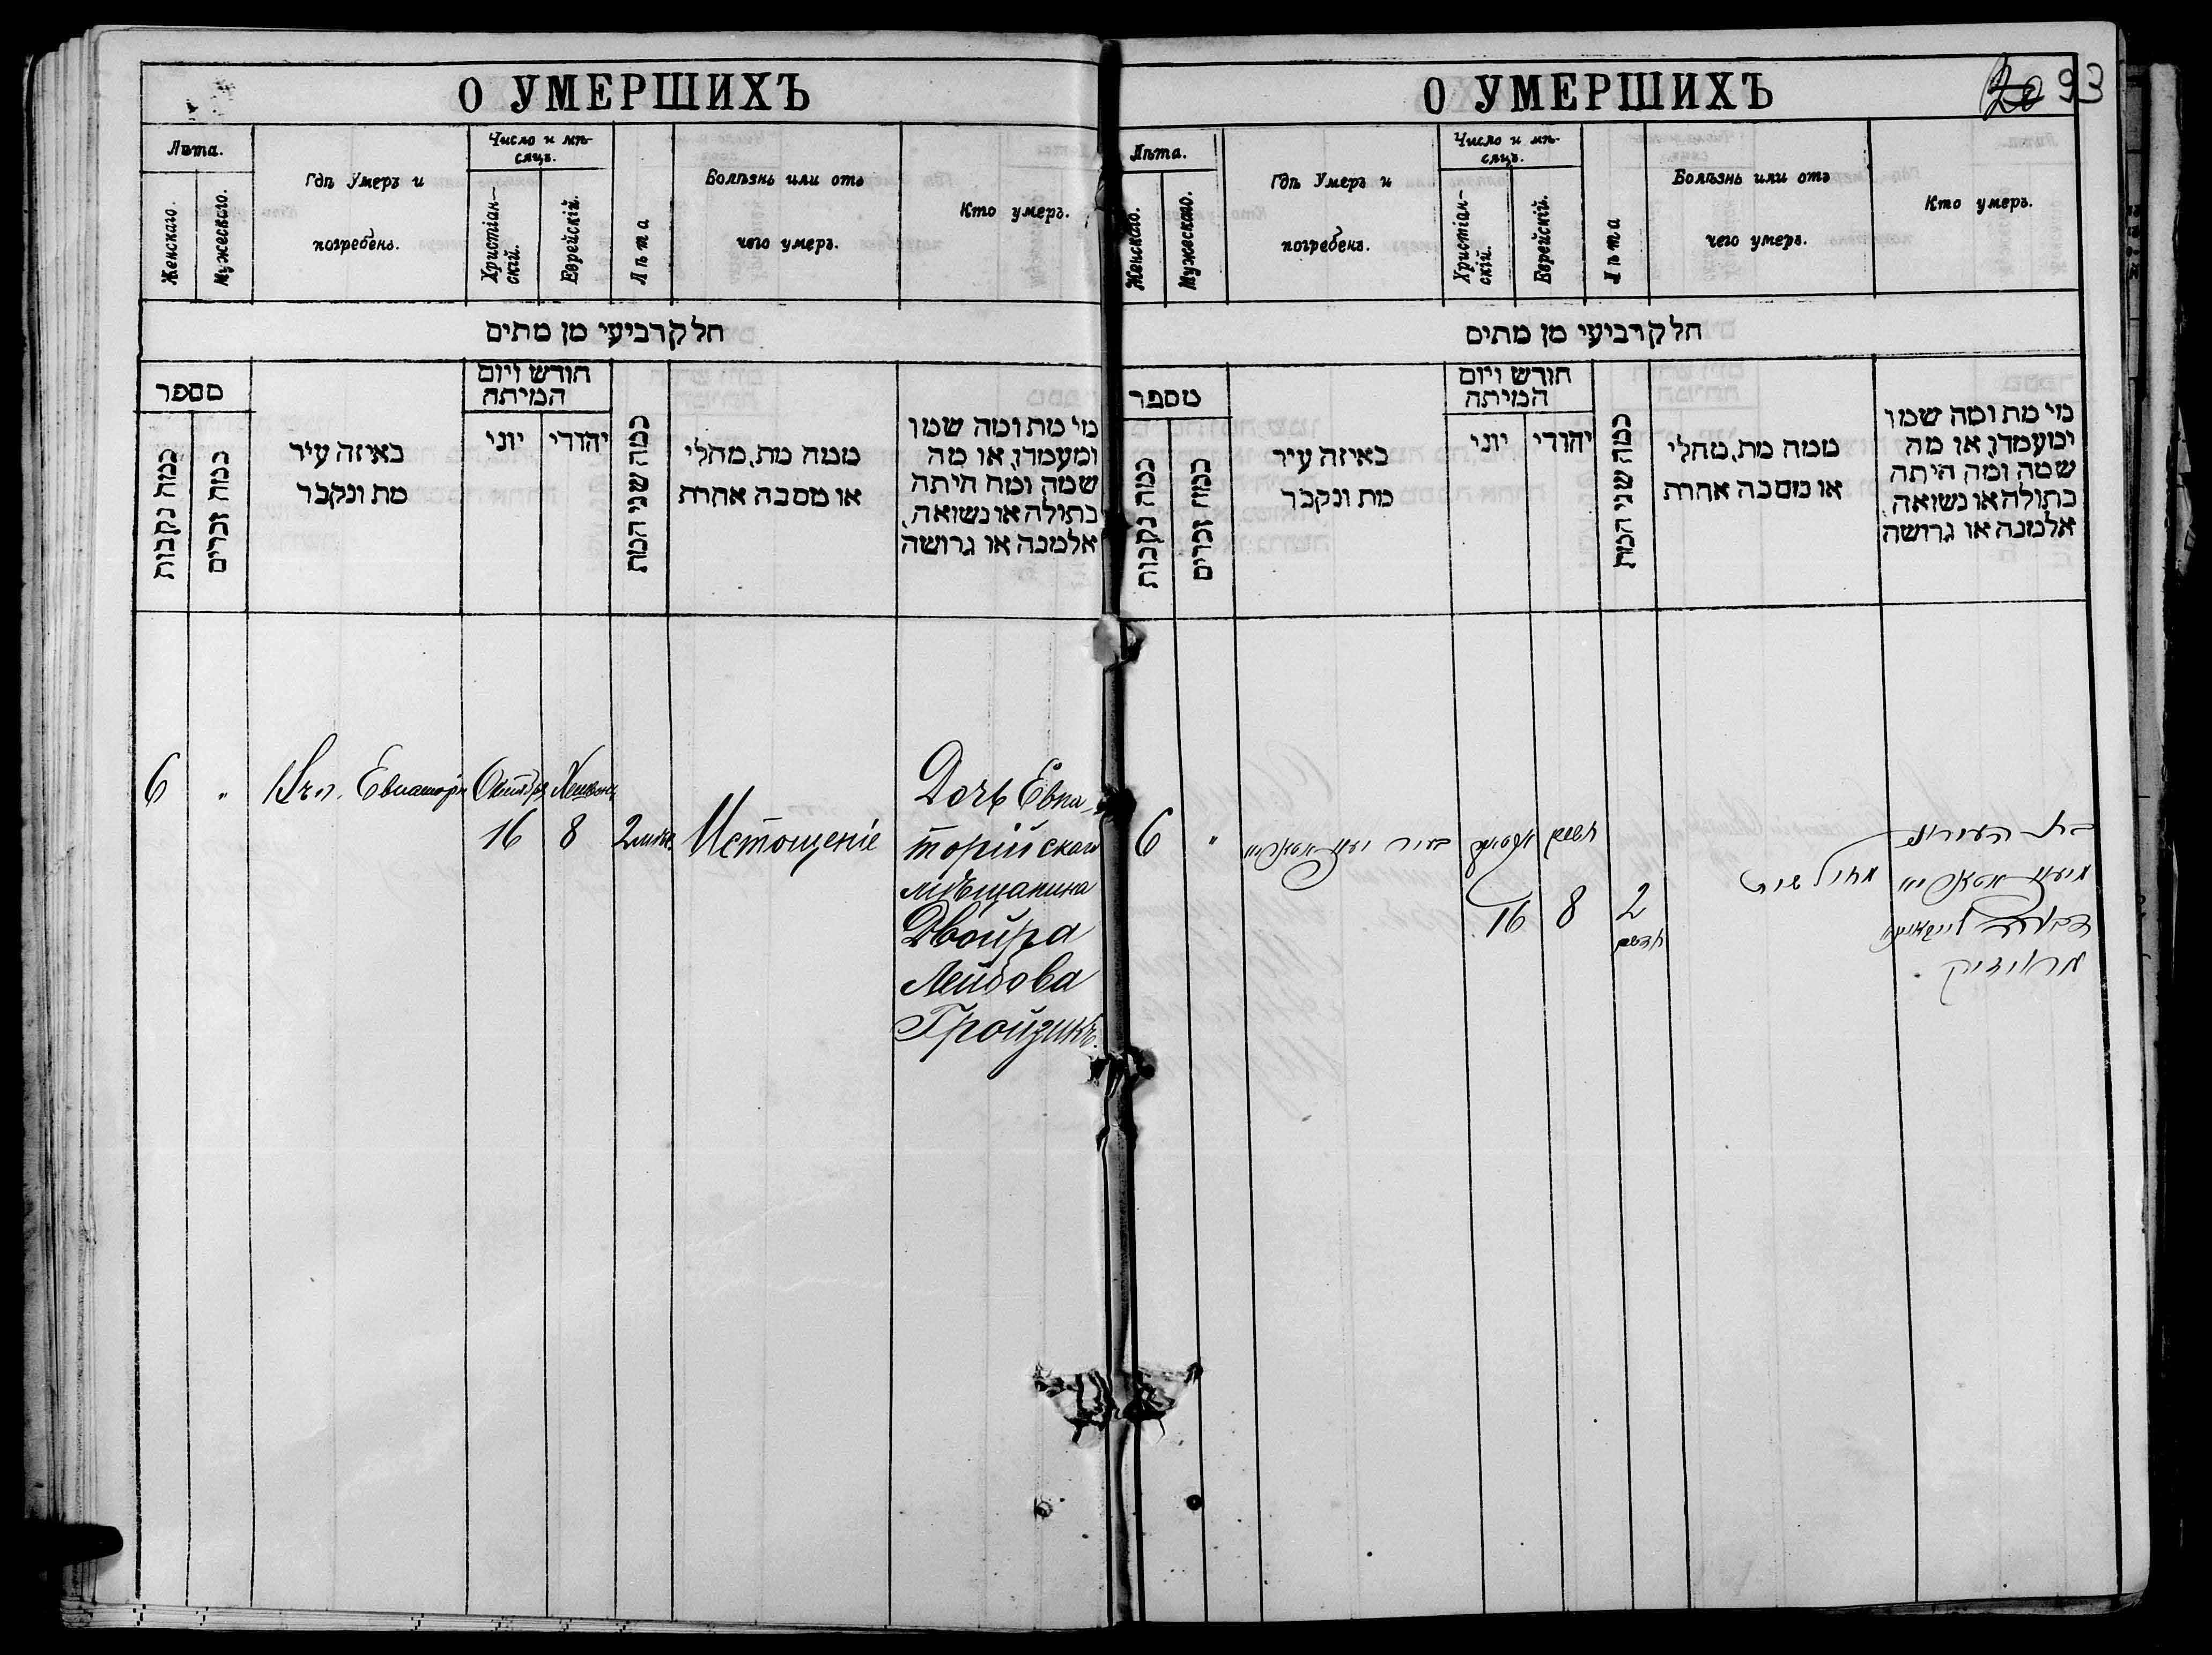 О УМЕРШИХЪ
Лѣта.
Женскаго.
Мужескаго.
Гдѣ Умеръ и
погребенъ.
Число и мѣ-
сяцъ.
Христіан-
скій.
Еврейскій.
Лѣта
Болѣзнь или отъ
чего умеръ.
Кто умеръ.
חלק רביעי מן מתים
מספר
כמה נקבות
כמה זכרים
באיזה עיר
מת ונקבר
חודש ויום
המיתה
יוני
יהודי
כמה שני המת
ממה מת, מחלי
או מסבה אחרת
מי מת ומה שמו
ומעמדו, או מה
שמה ומה היתה
בתולה או נשואה,
אלמנה או גרושה
6 " Евпатори Октября Хешвонъ
16 8 2 Истощеніе
Дочь Евпа-
торійскаго
мѣщанина
Двойра
Лейбова
Гройзикъ.
О УМЕРШИХЪ
20 93
Лѣта.
Женскаго.
Мужескаго.
Гдѣ Умеръ и
погребенъ.
Число и мѣ-
сяцъ.
Христіан-
скій.
Еврейскій.
Лѣта
Болѣзнь или отъ
чего умеръ.
Кто умеръ.
חלק רביעי מן מתים
מספר
כמה נקבות
כמה זכרים
באיזה עיר
מת ונקבר
חודש ויום
המיתה
יוני
יהודי
כמה שני המת
ממה מת, מחלי
או מסבה אחרת
מי מת ומה שמו
ומעמדו, או מה
שמה ומה היתה
בתולה או נשואה,
אלמנה או גרושה
6 " בעיר חשון
16 8 2
חדשים
מחולשות
בת העירוני
דבורה